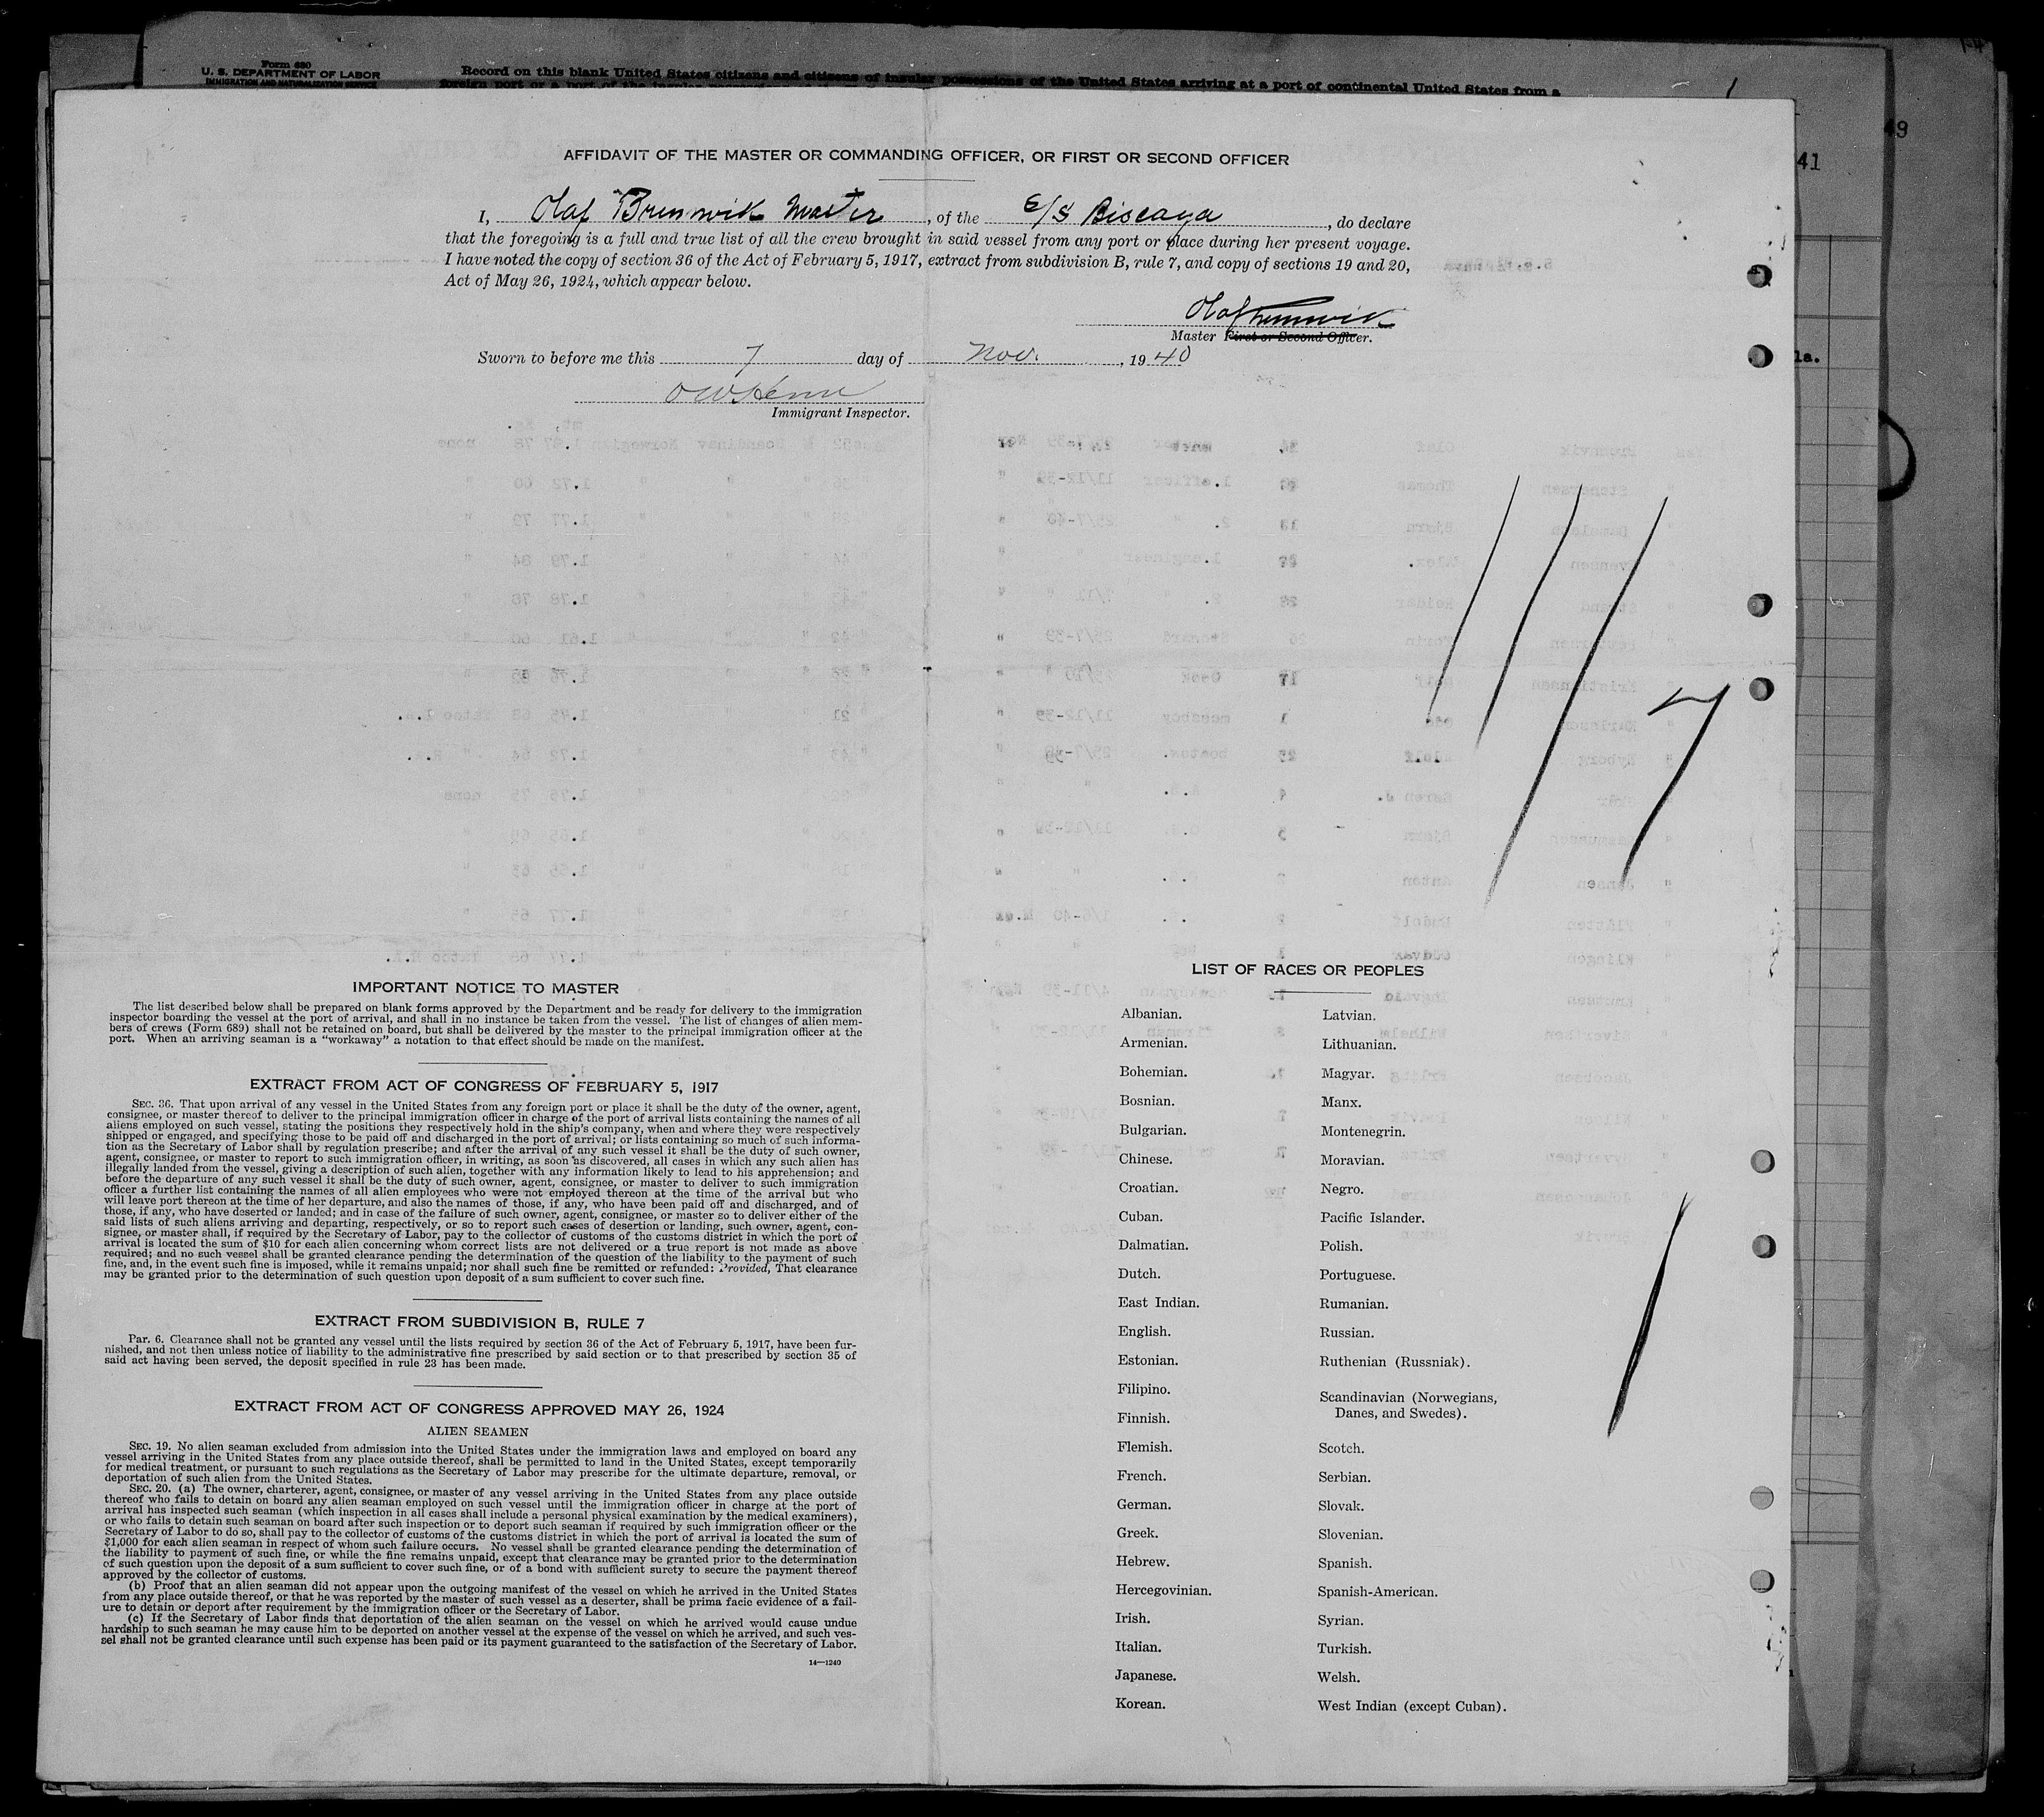 Form 680
U. S. DEPARTMENT OF LABOR
IMMIGRATION AND NATURALIZATION SERVICE
Record on this blank United States citizens and citizens of insular possessions of the United States arriving at a port of continental United States from a
49
41
la.
AFFIDAVIT OF THE MASTER OR COMMANDING OFFICER, OR FIRST OR SECOND OFFICER
I, Olaf Brunwik Master, of the S/S Biscaya, do declare
that the foregoing is a full and true list of all the crew brought in said vessel from any port or place during her present voyage.
I have noted the copy of section 36 of the Act of February 5, 1917, extract from subdivision B, rule 7, and copy of sections 19 and 20,
Act of May 26, 1924, which appear below.
Olaf Brunwik
Master First or Second Officer.
Sworn to before me this 7 day of Nov., 1940
Immigrant Inspector.
7
IMPORTANT NOTICE TO MASTER
The list described below shall be prepared on blank forms approved by the Department and be ready for delivery to the immigration
inspector boarding the vessel at the port of arrival, and shall in no instance be taken from the vessel. The list of changes of alien mem-
bers of crews (Form 689) shall not be retained on board, but shall be delivered by the master to the principal immigration officer at the
port. When an arriving seaman is a “workaway” a notation to that effect should be made on the manifest.
EXTRACT FROM ACT OF CONGRESS OF FEBRUARY 5, 1917
SEC. 36. That upon arrival of any vessel in the United States from any foreign port or place it shall be the duty of the owner, agent,
consignee, or master thereof to deliver to the principal immigration officer in charge of the port of arrival lists containing the names of all
aliens employed on such vessel, stating the positions they respectively hold in the ship's company, when and where they were respectively
shipped or engaged, and specifying those to be paid off and discharged in the port of arrival; or lists containing so much of such informa-
tion as the Secretary of Labor shall by regulation prescribe; and after the arrival of any such vessel it shall be the duty of such owner,
agent, consignee, or master to report to such immigration officer, in writing, as soon as discovered, all cases in which any such alien has
illegally landed from the vessel, giving a description of such alien, together with any information likely to lead to his apprehension; and
before the departure of any such vessel it shall be the duty of such owner, agent, consignee, or master to deliver to such immigration
officer a further list containing the names of all alien employees who were not employed thereon at the time of the arrival but who
will leave port thereon at the time of her departure, and also the names of those, if any, who have been paid off and discharged, and of
those, if any, who have deserted or landed; and in case of the failure of such owner, agent, consignee, or master so to deliver either of the
said lists of such aliens arriving and departing, respectively, or so to report such cases of desertion or landing, such owner, agent, con-
signee, or master shall, if required by the Secretary of Labor, pay to the collector of customs of the customs district in which the port of
arrival is located the sum of $10 for each alien concerning whom correct lists are not delivered or a true report is not made as above
required; and no such vessel shall be granted clearance pending the determination of the question of the liability to the payment of such
fine, and, in the event such fine is imposed, while it remains unpaid; nor shall such fine be remitted or refunded: Provided, That clearance
may be granted prior to the determination of such question upon deposit of a sum sufficient to cover such fine.
EXTRACT FROM SUBDIVISION B, RULE 7
Par. 6. Clearance shall not be granted any vessel until the lists required by section 36 of the Act of February 5, 1917, have been fur-
nished, and not then unless notice of liability to the administrative fine prescribed by said section or to that prescribed by section 35 of
said act having been served, the deposit specified in rule 23 has been made.
EXTRACT FROM ACT OF CONGRESS APPROVED MAY 26, 1924
ALIEN SEAMEN
SEC. 19. No alien seaman excluded from admission into the United States under the immigration laws and employed on board any
vessel arriving in the United States from any place outside thereof, shall be permitted to land in the United States, except temporarily
for medical treatment, or pursuant to such regulations as the Secretary of Labor may prescribe for the ultimate departure, removal, or
deportation of such alien from the United States.
SEC. 20. (a) The owner, charterer, agent, consignee, or master of any vessel arriving in the United States from any place outside
thereof who fails to detain on board any alien seaman employed on such vessel until the immigration officer in charge at the port of
arrival has inspected such seaman (which inspection in all cases shall include a personal physical examination by the medical examiners),
or who fails to detain such seaman on board after such inspection or to deport such seaman if required by such immigration officer or the
Secretary of Labor to do so, shall pay to the collector of customs of the customs district in which the port of arrival is located the sum of
$1,000 for each alien seaman in respect of whom such failure occurs. No vessel shall be granted clearance pending the determination of
the liability to payment of such fine, or while the fine remains unpaid, except that clearance may be granted prior to the determination
of such question upon the deposit of a sum sufficient to cover such fine, or of a bond with sufficient surety to secure the payment thereof
approved by the collector of customs.
(b) Proof that an alien seaman did not appear upon the outgoing manifest of the vessel on which he arrived in the United States
from any place outside thereof, or that he was reported by the master of such vessel as a deserter, shall be prima facie evidence of a fail-
ure to detain or deport after requirement by the immigration officer or the Secretary of Labor.
(c) If the Secretary of Labor finds that deportation of the alien seaman on the vessel on which he arrived would cause undue
hardship to such seaman he may cause him to be deported on another vessel at the expense of the vessel on which he arrived, and such ves-
sel shall not be granted clearance until such expense has been paid or its payment guaranteed to the satisfaction of the Secretary of Labor.
14—1240
LIST OF RACES OR PEOPLES
Albanian.
Armenian.
Bohemian.
Bosnian.
Bulgarian.
Chinese.
Croatian.
Cuban.
Dalmatian.
Dutch.
East Indian.
English.
Estonian.
Filipino.
Finnish.
Flemish.
French.
German.
Greek.
Hebrew.
Hercegovinian.
Irish.
Italian.
Japanese.
Korean.
Latvian.
Lithuanian.
Magyar.
Manx.
Montenegrin.
Moravian.
Negro.
Pacific Islander.
Polish.
Portuguese.
Rumanian.
Russian.
Ruthenian (Russniak).
Scandinavian (Norwegians,
Danes, and Swedes).
Scotch.
Serbian.
Slovak.
Slovenian.
Spanish.
Spanish-American.
Syrian.
Turkish.
Welsh.
West Indian (except Cuban).